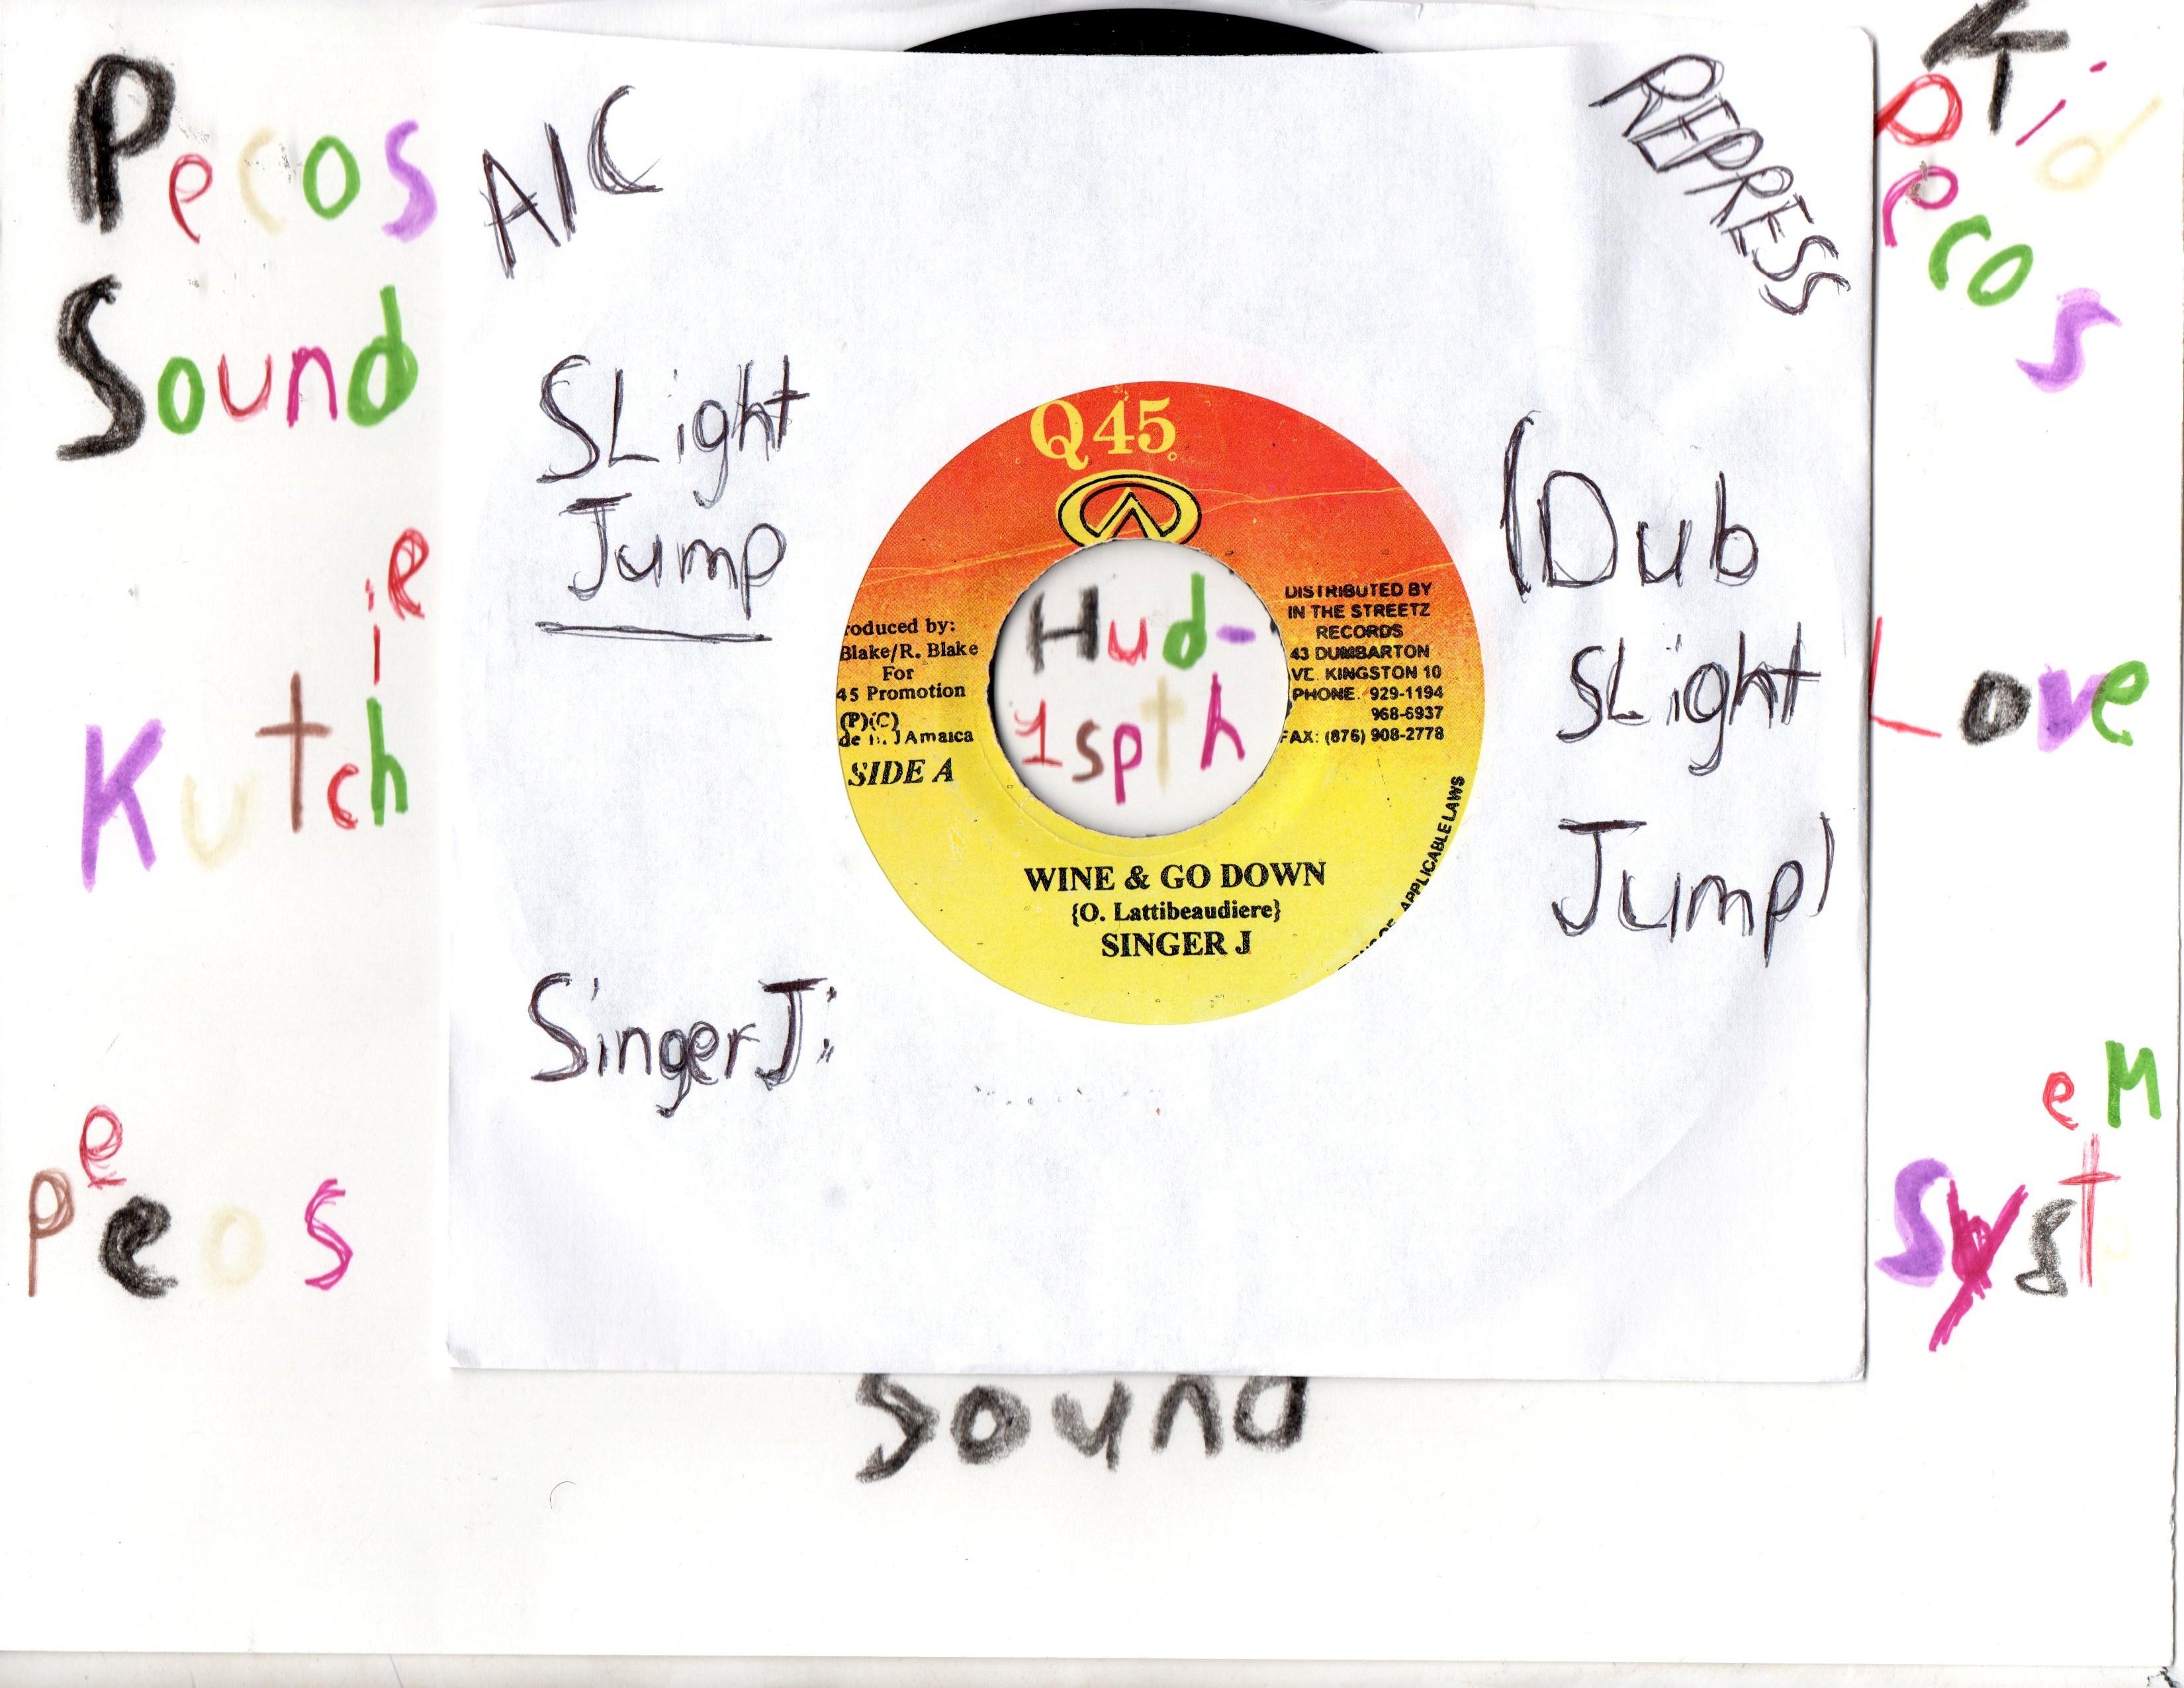 Pecos
Sound
Kutchie
Pecos
A1C
REPRESS
Kid
Pecos
SLight
Jump
(Dub
SLight
Jump)
Singer J:
Love
SysteM
Sound
Q 45
roduced by:
Blake/R. Blake
For
45 Promotion
(P)(C)
JAmaica
SIDE A
Hud-
1spth
DISTRIBUTED BY
IN THE STREETZ
RECORDS
43 DUMBARTON
VE. KINGSTON 10
PHONE. 929-1194
968-6937
FAX: (876) 908-2778
APPLICABLE LAWS
WINE & GO DOWN
{O. Lattibeaudiere}
SINGER J